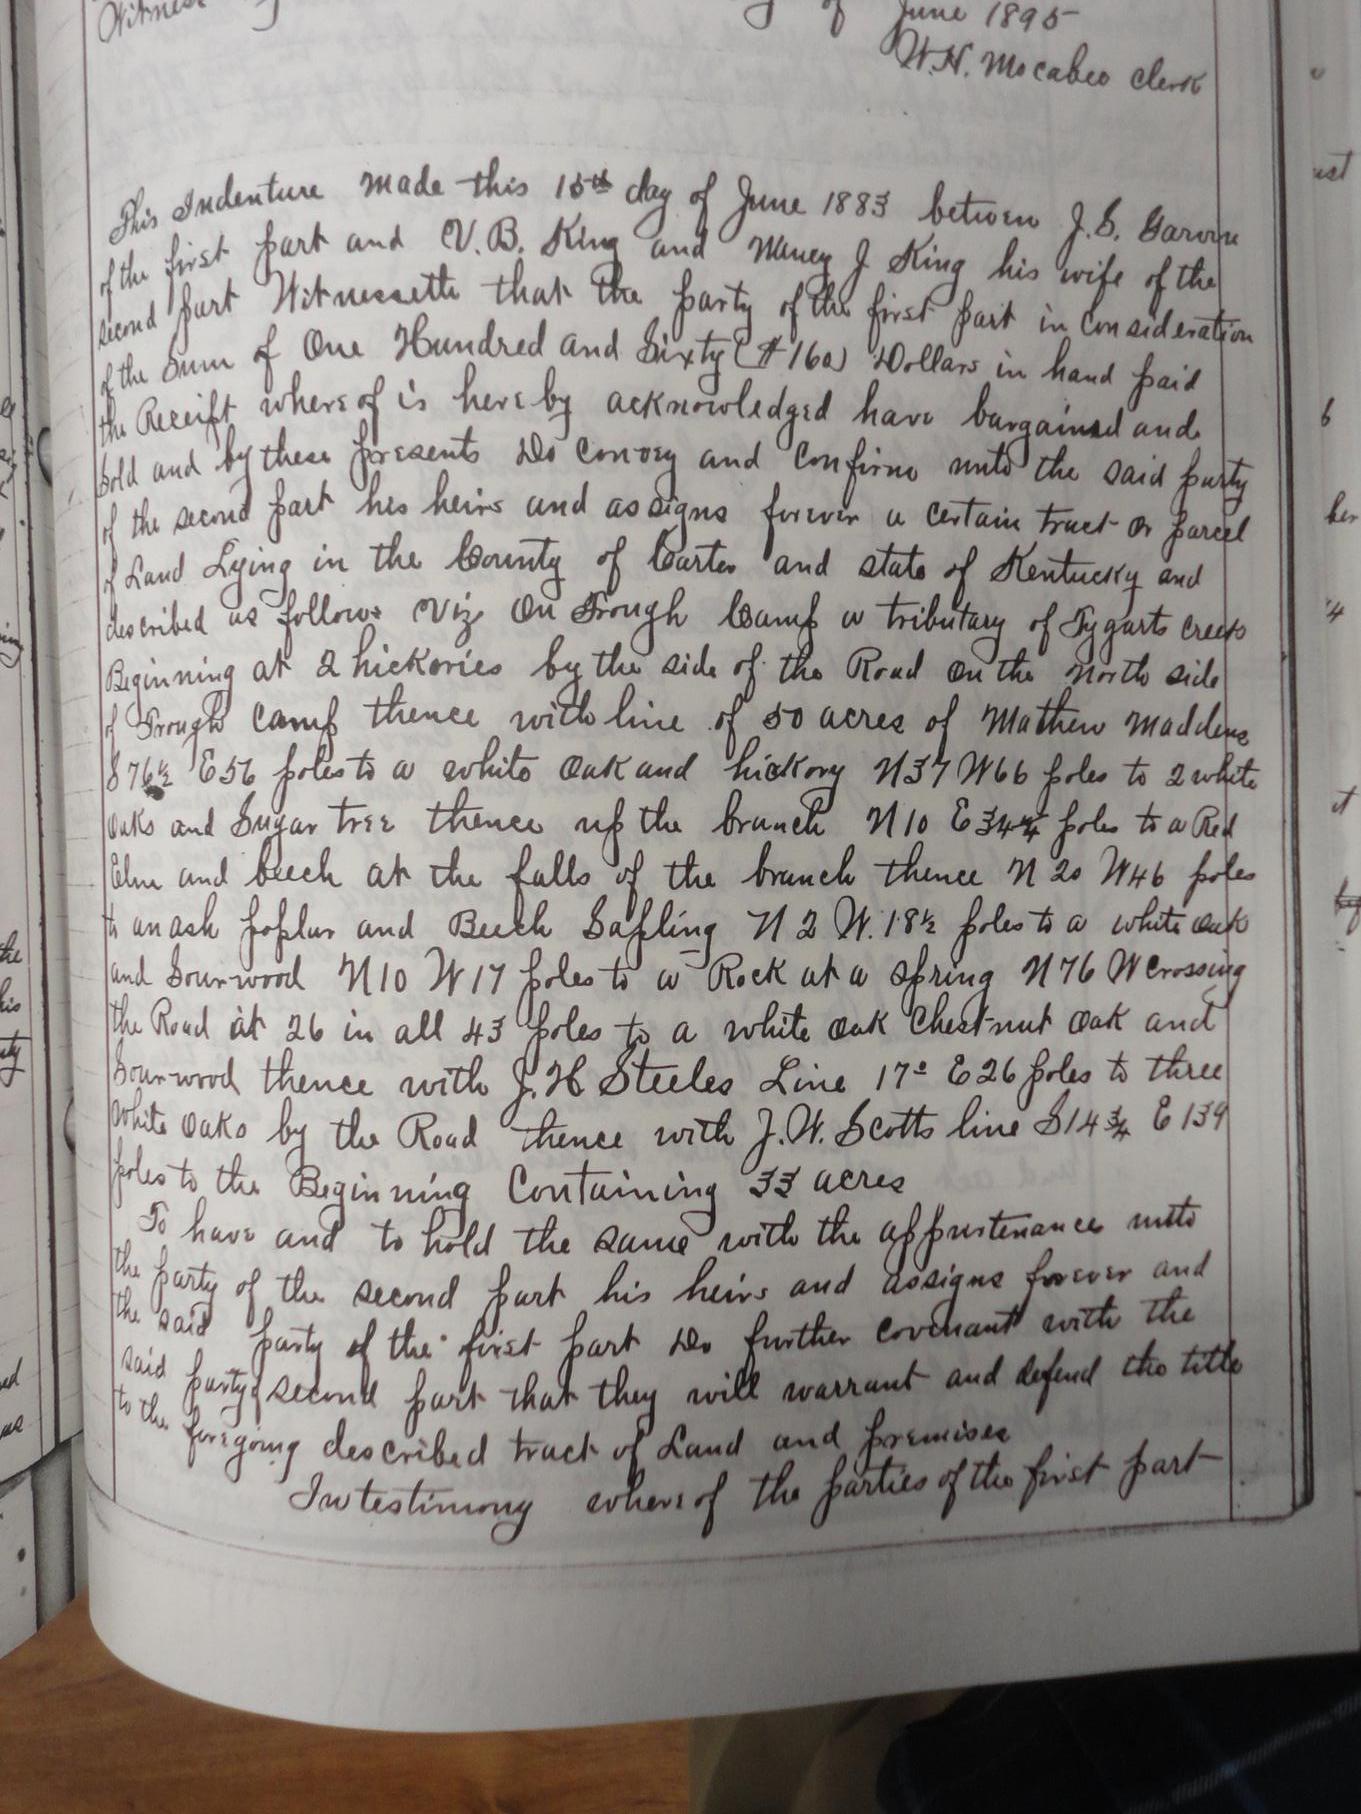 Witness of June 1895
W.H. Mocabee Clerk
This Indenture made this 15th day of June 1883 between J.S. Garvin
of the first part and V.B. King and Nancy J King his wife of the
second part Witnesseth that the party of the first part in consideration
of the Sum of One Hundred and Sixty ($160) Dollars in hand paid
the Receipt whereof is hereby acknowledged have bargained and
Sold and by these presents Do convey and confirm unto the said party
of the second part his heirs and assigns forever a certain tract or parcel
of Land Lying in the County of Carter and state of Kentucky and
described as follows Viz On Trough Camp a tributary of Tygarts creek
Beginning at 2 hickories by the side of the Road on the North side
of Trough Camp thence with line of 50 acres of Mathew Maddens
S 76½ E 56 poles to a white oak and hickory N37 W66 poles to 2 white
oaks and Sugar tree thence up the branch N10 E 34¼ poles to a Red
Elm and beech at the falls of the branch thence N 20 W46 poles
to an ash poplar and Beech Sapling N 2 W. 18½ poles to a white oak
and Sourwood N10 W17 poles to a Rock at a spring N76 W crossing
the Road at 26 in all 43 poles to a white oak Chestnut oak and
Sourwood thence with J.H Steeles Line 17° E26 poles to three
White Oaks by the Road thence with J.W. Scotts line S14¾ E 139
poles to the Beginning Containing 33 acres
To have and to hold the same with the appurtenance unto
the party of the second part his heirs and assigns forever and
the said party of the first part Do further covenant with the
said party of second part that they will warrant and defend the title
to the foregoing described tract of Land and premises
In testimony whereof the parties of the first part